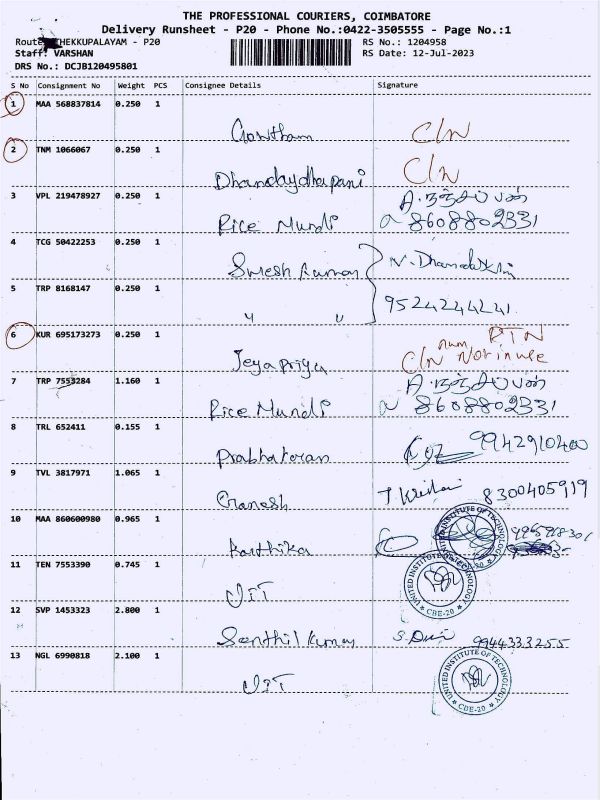 THE PROFESSIONAL COURIERS, COIMBATORE
Delivery Runsheet - P20 - Phone No.:0422-3505555 - Page No.:1
Route: THEKKUPALAYAM - P20 RS No.: 1204958
Staff: VARSHAN RS Date: 12-Jul-2023
DRS No.: DCJB120495801
S No Consignment No Weight PCS Consignee Details Signature
1 MAA 568837814 0.250 1
Gowtham C/N
2 TNM 1066067 0.250 1
Dhandaydhapani C/N
3 VPL 219478927 0.250 1
Rice Mundi 8608802331
4 TCG 50422253 0.250 1
Suresh kumar
5 TRP 8168147 0.250 1
" " 9524244241
6 KUR 695173273 0.250 1
RTN
Jeyapriya C/N num Not in use
7 TRP 7553284 1.160 1
Rice Mundi 8608802331
8 TRL 652411 0.155 1
Prabhakaran 9942910400
9 TVL 3817971 1.065 1
Ganesh 8300405919
10 MAA 860600980 0.965 1
Karthika
UNITED INSTITUTE OF TECHNOLOGY
11 TEN 7553390 0.745 1
UIT
UNITED INSTITUTE OF TECHNOLOGY
CBE-20
12 SVP 1453323 2.800 1
Senthil kumar 9944333255
13 NGL 6990818 2.100 1
UIT
UNITED INSTITUTE OF TECHNOLOGY
CBE-20